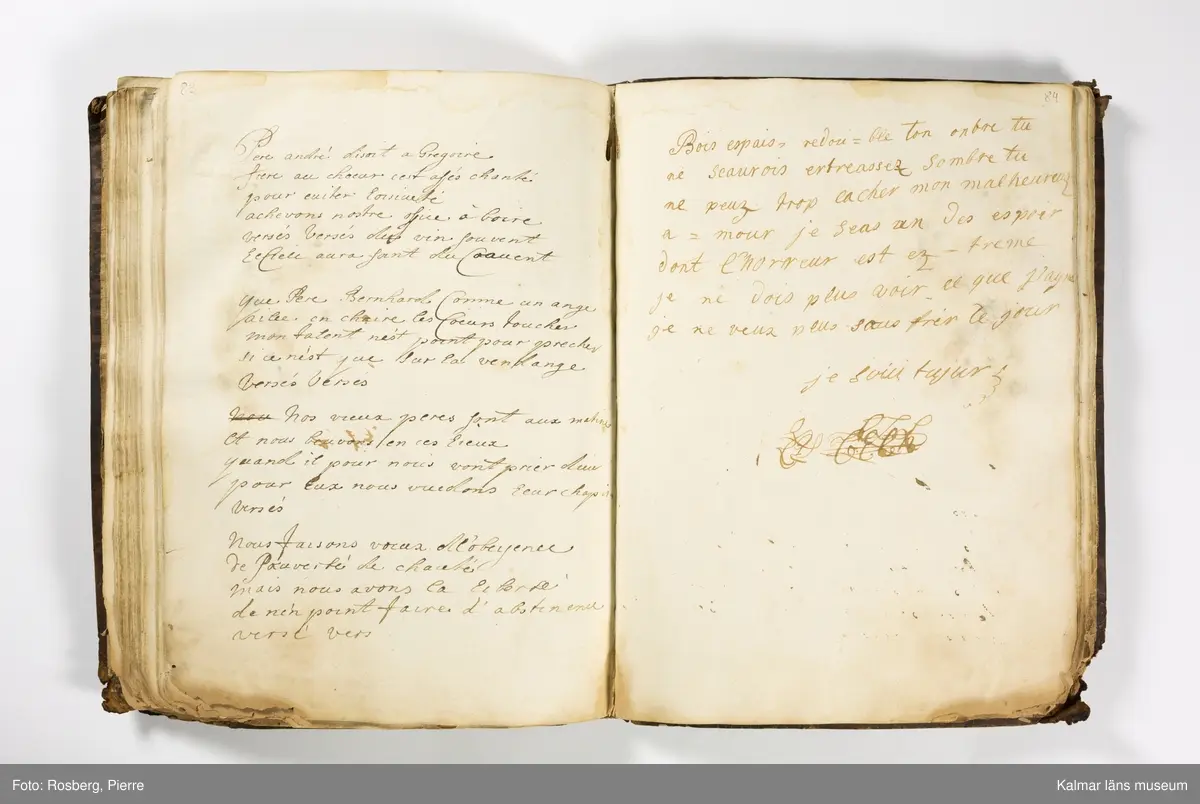 Pere andré disoit a Gregoire
frere au choeur cest assés chanté
pour euiter loisiueté
achevons nostre a boire
versés versés du vin souvent
aura soint du Couuent
que Pere Bernhard Comme un ange
faile en chaire les Coeurs toucher
mon talent nést point pour precher
si ce nést que sur la vendange
versés versés
Nos vieux peres sont aux matines
et nous beuvons en ces lieux
quand il pour nous vont prier dieu
pour Eux nous vuidons leur
versés
Nous faisons voeux
de Pauverté de
mais nous avons la Liberté
de nén point faire d'abstinence
versé vers
84
Bois espais redou=ble ton onbre tu
ne seaurois ertreassez sombre tu
ne peuz trop cacher mon malheureuz
a=mour je seas un des espoir
dont l'horreur est ez-treme
je ne dois plus voir ce que j'ayme
je ne veux plus sous frir le jour
je suis tujur
Foto: Rosberg, Pierre
Kalmar läns museum